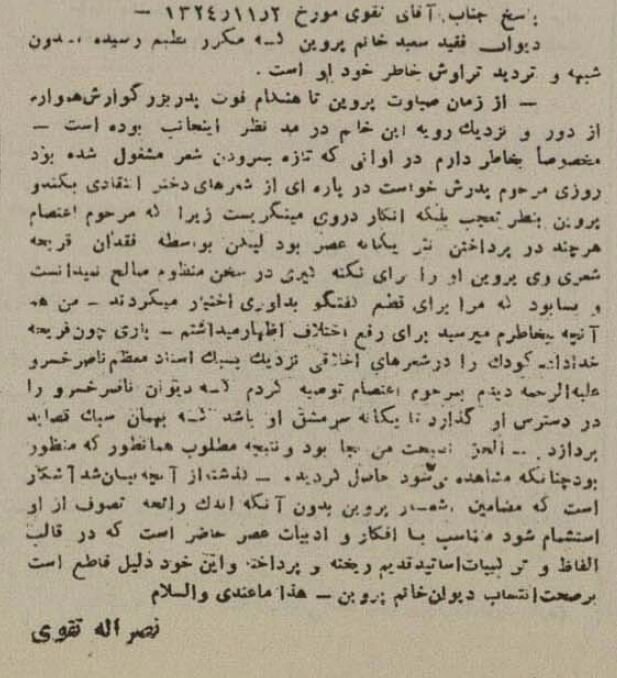 پاسخ جناب آقای تقوی مورخ ۲ر۱۱ر۱۳۲٤ —
دیوان فقید سعید خانم پروین که مکرر بطبع رسیده بدون
شبهه و تردید تراوش خاطر خود او است .
— از زمان صباوت پروین تا هنگام فوت پدر بزرگوارش همواره
از دور و نزدیك رویه این خانم در مد نظر اینجانب بوده است —
مخصوصاً بخاطر دارم در اوانی که تازه بسرودن شعر مشغول شده بود
روزی مرحوم پدرش خواست در پاره ای از شعرهای دختر انتقادی بکند و
پروین بنظر تعجب بلکه انکار در وی مینگریست زیرا که مرحوم اعتصام
هرچند در پرداختن نثر یگانه عصر بود لیکن بواسطه فقدان قریحه
شعری وی پروین او را برای نکته گیری در سخن منظوم صالح نمیدانست
و بسا بود که مرا برای قطع گفتگو بداوری اختیار میکردند — من هم
آنچه بخاطرم میرسید برای رفع اختلاف اظهار میداشتم — باری چون قریحه
خداداد کودك را در شعرهای اخلاقی نزدیك بسبك استاد معظم ناصر خسرو
علیه الرحمه دیدم بمرحوم اعتصام توصیه کردم که دیوان ناصر خسرو را
در دسترس او گذارد تا یگانه سرمشق او باشد که بهمان سبك قصاید
بپردازد — الحق نصیحت من بجا بود و نتیجه مطلوب همانطور که منظور
بود چنانکه مشاهده می شود حاصل گردید — گذشته از آنچه بیان شد آشکار
است که مضامین اشعار پروین بدون آنکه اندك رائحه تصوف از او
استشمام شود مناسب با افکار و ادبیات عصر حاضر است که در قالب
الفاظ و ترکیبات اساتید قدیم ریخته و پرداخته و این خود دلیل قاطع است
بر صحت انتساب دیوان خانم پروین — هذا ما عندی والسلام
نصر اله تقوی